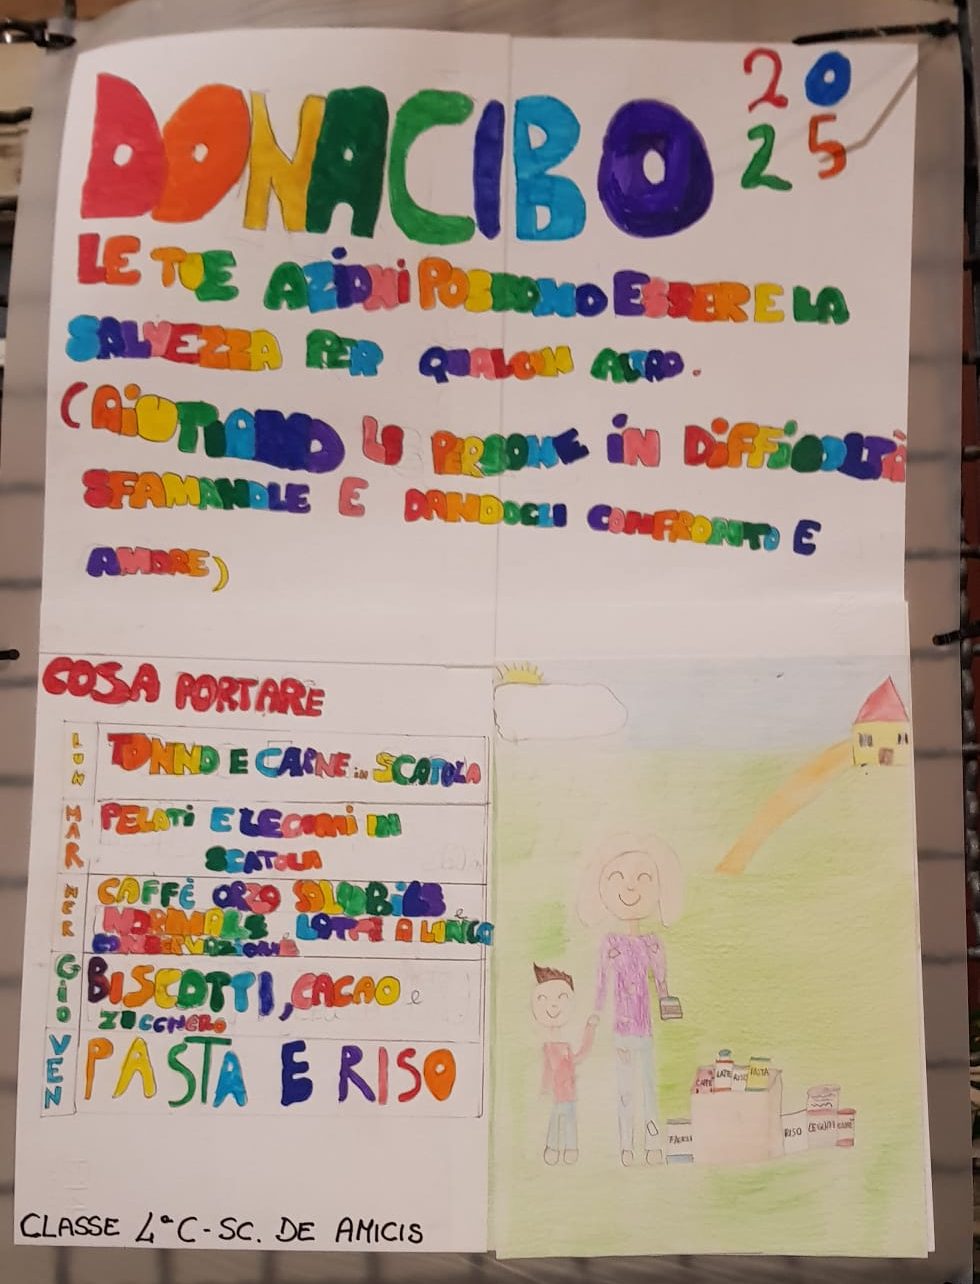 DONACIBO 2025
LE TUE AZIONI POSSONO ESSERE LA
SALVEZZA PER QUALCUN ALTRO.
(AIUTIAMO LE PERSONE IN DIFFICOLTÀ
SFAMANDLE E DANDOGLI CONFRONTO E
AMORE)
COSA PORTARE
LUN TONNO E CARNE in SCATOLA
MAR PELATI E LEGUMI IN
SCATOLA
MER CAFFÈ ORZO SOLUBILE e
NORMALE LATTE A LUNGA
CONSERVAZIONE
GIO BISCOTTI, CACAO e
ZUCCHERO
VEN PASTA E RISO
CAFFE LATE RISO PASTA
RISO LEGUMI
CLASSE 4ªC - SC. DE AMICIS